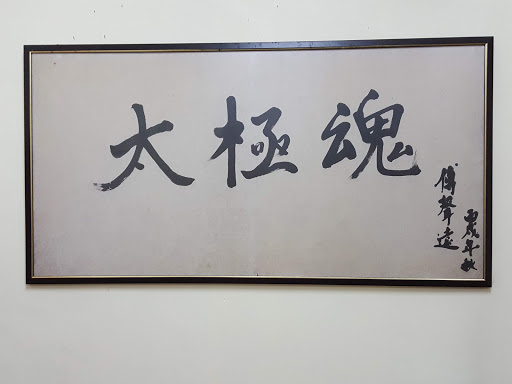 太極魂
傅聲遠
丙戌年秋